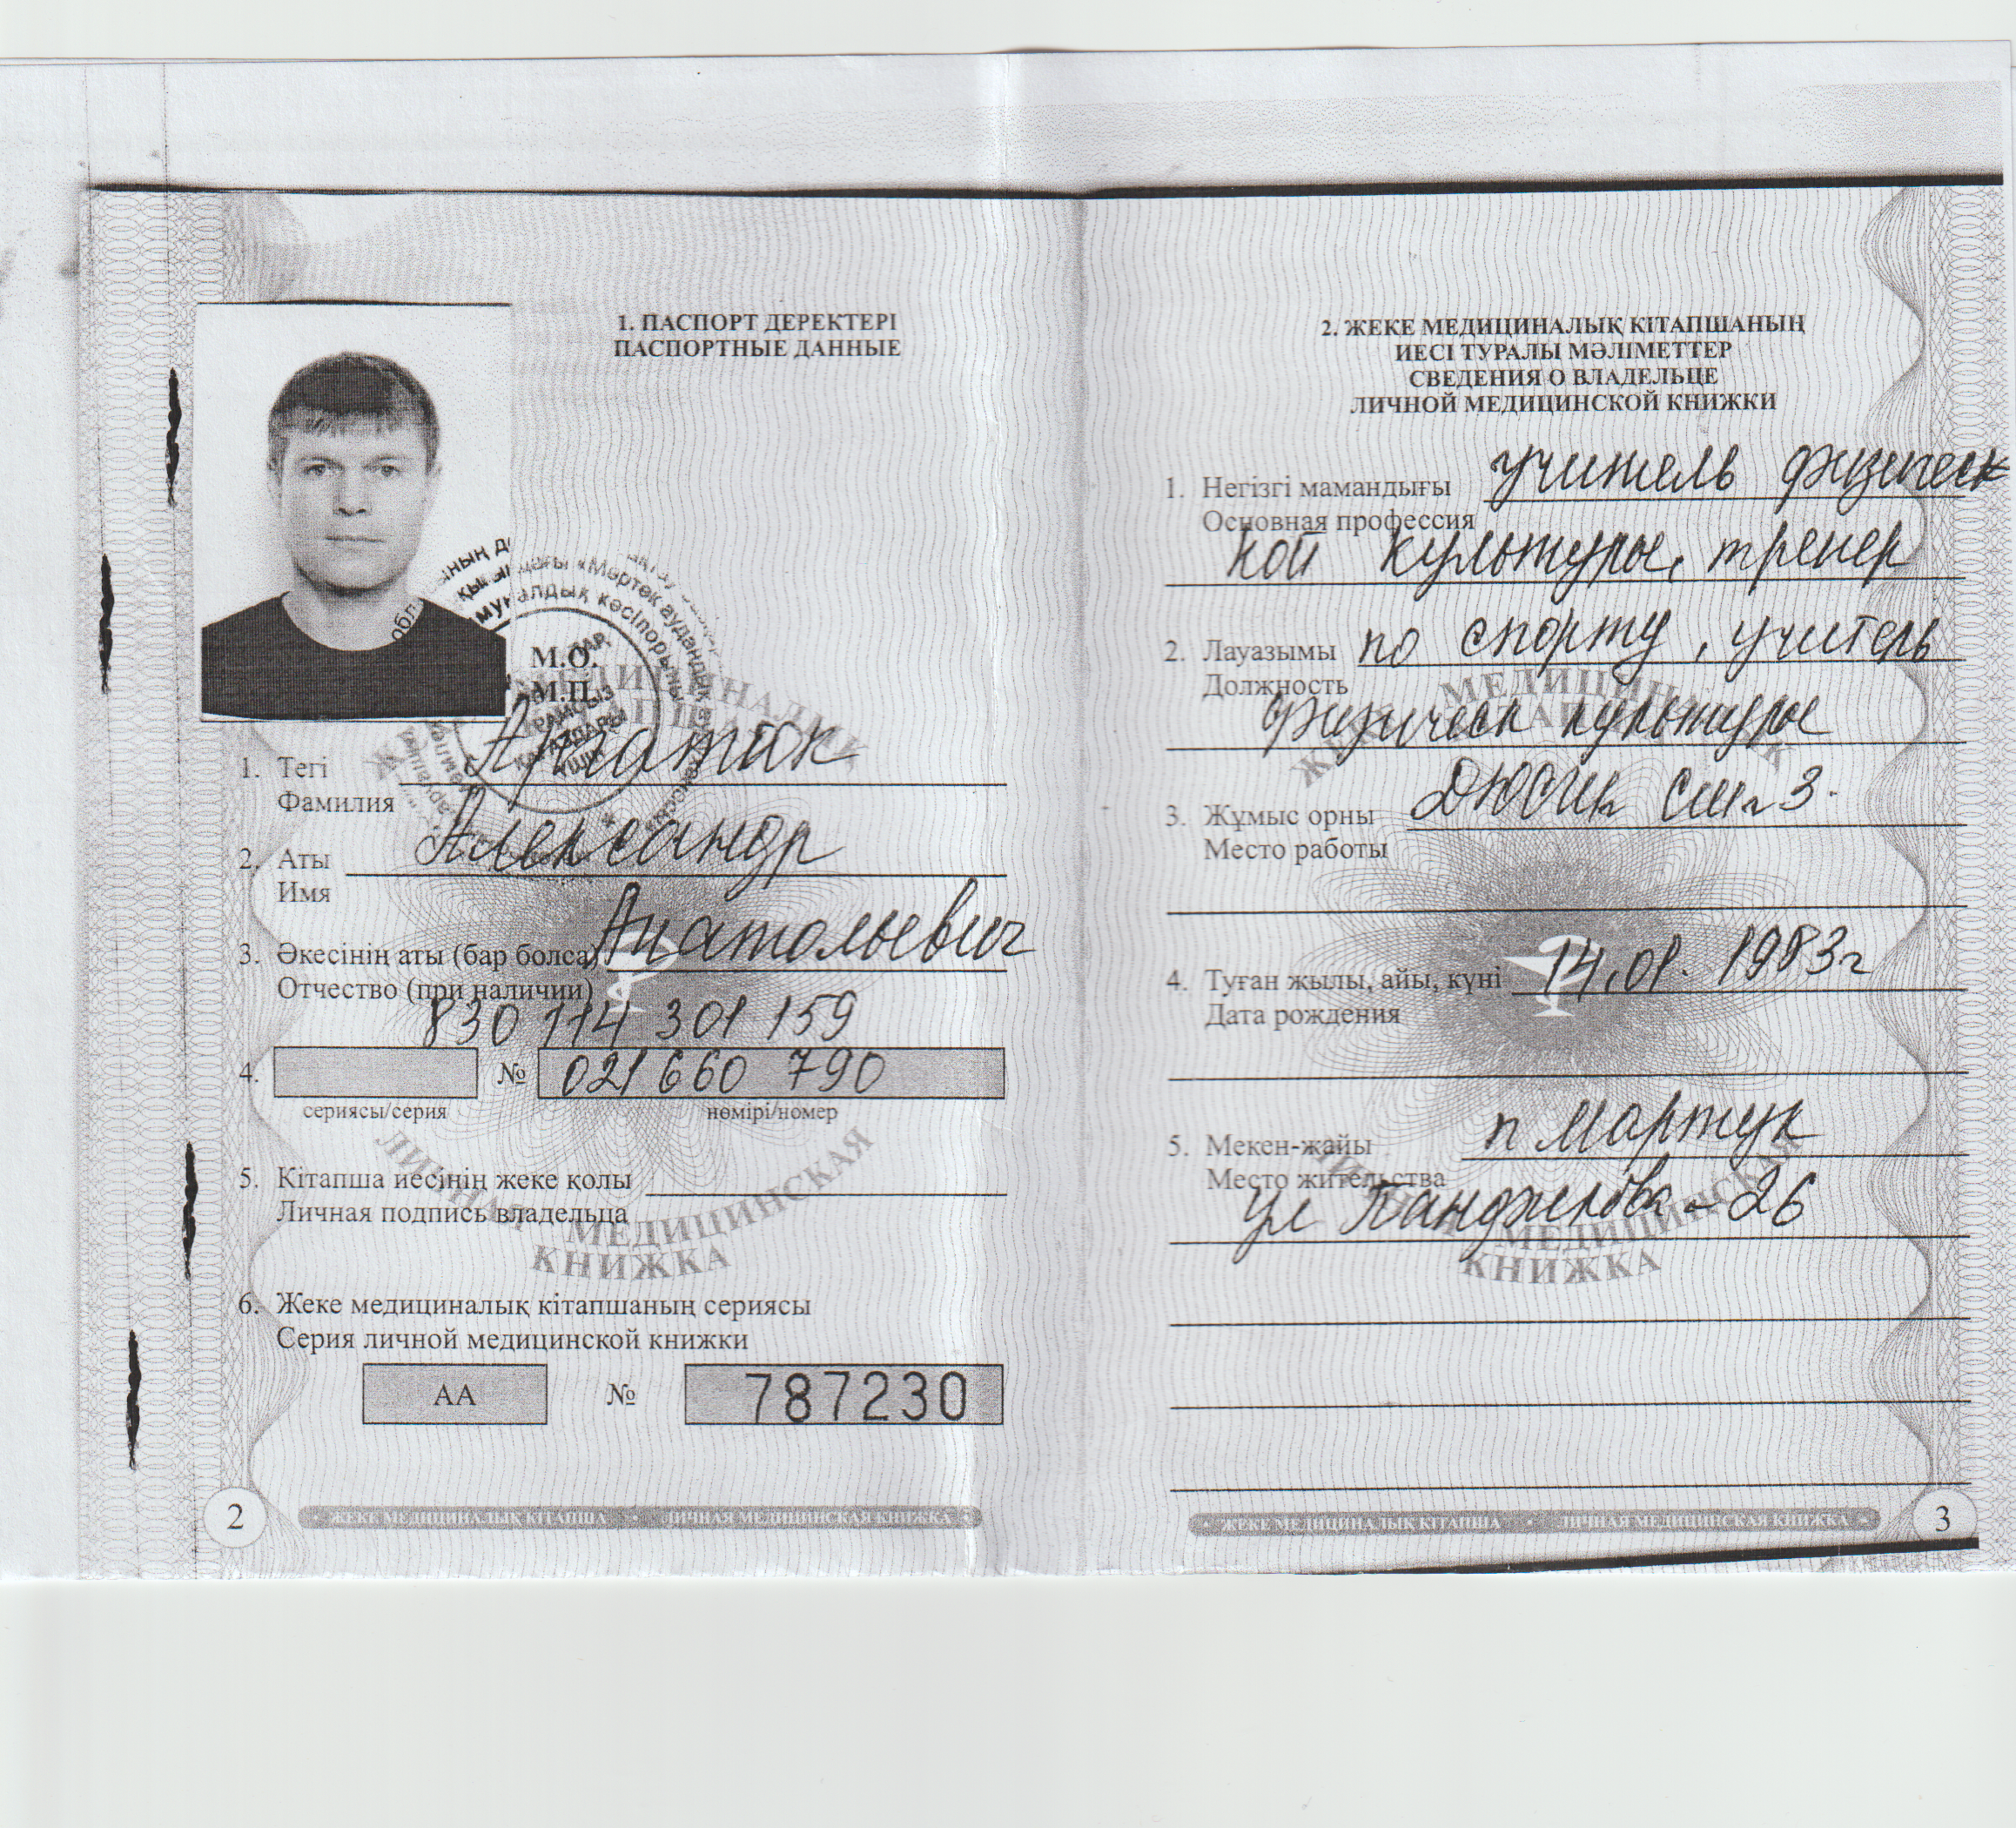 1. ПАСПОРТ ДЕРЕКТЕРІ
ПАСПОРТНЫЕ ДАННЫЕ
М.О.
М.П.
1. Тегі
Фамилия
2. Аты Александр
Имя
3. Әкесінің аты (бар болса) Анатольевич
Отчество (при наличии)
830 114 301 159
4. № 021660 790
сериясы/серия нөмірі/номер
5. Кітапша иесінің жеке қолы
Личная подпись владельца
6. Жеке медициналық кітапшаның сериясы
Серия личной медицинской книжки
АА № 787230
ЛИЧНАЯ МЕДИЦИНСКАЯ
КНИЖКА
2 ЖЕКЕ МЕДИЦИНАЛЫҚ КІТАПША • ЛИЧНАЯ МЕДИЦИНСКАЯ КНИЖКА
2. ЖЕКЕ МЕДИЦИНАЛЫҚ КІТАПШАНЫҢ
ИЕСІ ТУРАЛЫ МӘЛІМЕТТЕР
СВЕДЕНИЯ О ВЛАДЕЛЬЦЕ
ЛИЧНОЙ МЕДИЦИНСКОЙ КНИЖКИ
1. Негізгі мамандығы учитель физическ
Основная профессия
кой культуры, тренер
2. Лауазымы по спорту, учитель
Должность
физическ культуры
3. Жұмыс орны
Место работы
4. Туған жылы, айы, күні 14.01. 1983г
Дата рождения
5. Мекен-жайы п Мартук
Место жительства
ул 26
ЛИЧНАЯ МЕДИЦИНСКАЯ
КНИЖКА
ЖЕКЕ МЕДИЦИНАЛЫҚ КІТАПША • ЛИЧНАЯ МЕДИЦИНСКАЯ КНИЖКА 3